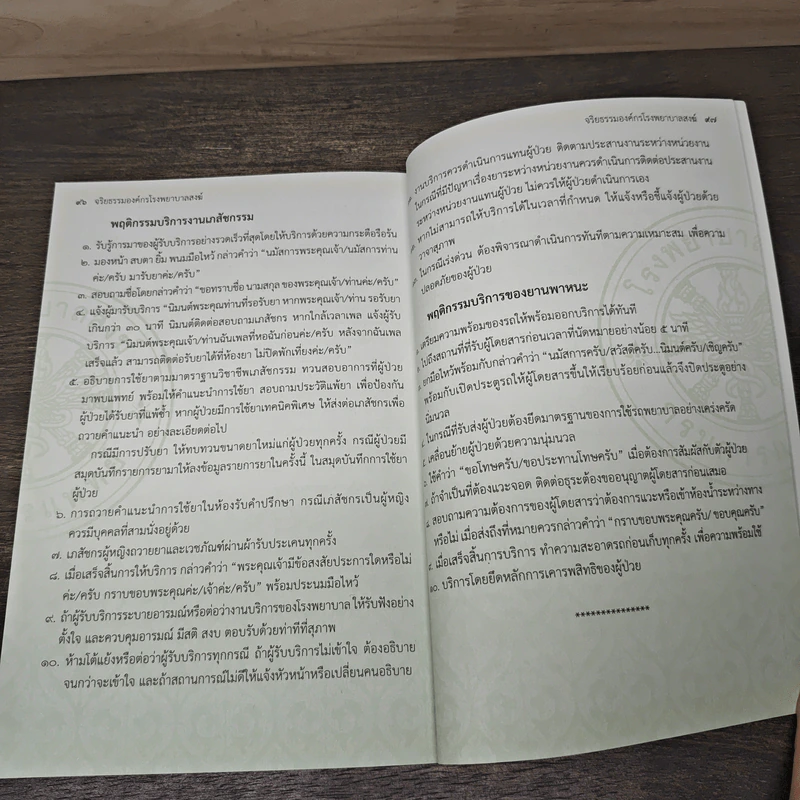 ๙๖ จริยธรรมองค์กรโรงพยาบาลสงฆ์
พฤติกรรมบริการงานเภสัชกรรม
๑. รับรู้การมาของผู้รับบริการอย่างรวดเร็วที่สุดโดยให้บริการด้วยความกระตือรือร้น
๒. มองหน้า สบตา ยิ้ม พนมมือไหว้ กล่าวคำว่า “นมัสการพระคุณเจ้า/นมัสการท่าน
ค่ะ/ครับ มารับยาค่ะ/ครับ”
๓. สอบถามชื่อโดยกล่าวคำว่า “ขอทราบชื่อ นามสกุล ของพระคุณเจ้า/ท่านค่ะ/ครับ”
๔. แจ้งผู้มารับบริการ “นิมนต์พระคุณท่านที่รอรับยา หากพระคุณเจ้า/ท่าน รอรับยา
เกินกว่า ๓๐ นาที นิมนต์ติดต่อสอบถามเภสัชกร หากใกล้เวลาเพล แจ้งผู้รับ
บริการ “นิมนต์พระคุณเจ้า/ท่านฉันเพลที่หอฉันก่อนค่ะ/ครับ หลังจากฉันเพล
เสร็จแล้ว สามารถติดต่อรับยาได้ที่ห้องยา ไม่ปิดพักเที่ยงค่ะ/ครับ”
๕. อธิบายการใช้ยาตามมาตราฐานวิชาชีพเภสัชกรรม ทวนสอบอาการที่ผู้ป่วย
มาพบแพทย์ พร้อมให้คำแนะนำการใช้ยา สอบถามประวัติแพ้ยา เพื่อป้องกัน
ผู้ป่วยได้รับยาที่แพ้ซ้ำ หากผู้ป่วยมีการใช้ยาเทคนิคพิเศษ ให้ส่งต่อเภสัชกรเพื่อ
ถวายคำแนะนำ อย่างละเอียดต่อไป
กรณีมีการปรับยา ให้ทบทวนขนาดยาใหม่แก่ผู้ป่วยทุกครั้ง กรณีผู้ป่วยมี
สมุดบันทึกรายการยามาให้ลงข้อมูลรายการยาในครั้งนี้ ในสมุดบันทึกการใช้ยา
ผู้ป่วย
๖. การถวายคำแนะนำการใช้ยาในห้องรับคำปรึกษา กรณีเภสัชกรเป็นผู้หญิง
ควรมีบุคคลที่สามนั่งอยู่ด้วย
๗. เภสัชกรผู้หญิงถวายยาและเวชภัณฑ์ผ่านผ้ารับประเคนทุกครั้ง
๘. เมื่อเสร็จสิ้นการให้บริการ กล่าวคำว่า “พระคุณเจ้ามีข้อสงสัยประการใดหรือไม่
ค่ะ/ครับ กราบขอบพระคุณค่ะ/เจ้าค่ะ/ครับ” พร้อมประนมมือไหว้
๙. ถ้าผู้รับบริการระบายอารมณ์หรือต่อว่างานบริการของโรงพยาบาล ให้รับฟังอย่าง
ตั้งใจ และควบคุมอารมณ์ มีสติ สงบ ตอบรับด้วยท่าทีที่สุภาพ
๑๐. ห้ามโต้แย้งหรือต่อว่าผู้รับบริการทุกกรณี ถ้าผู้รับบริการไม่เข้าใจ ต้องอธิบาย
จนกว่าจะเข้าใจ และถ้าสถานการณ์ไม่ดีให้แจ้งหัวหน้าหรือเปลี่ยนคนอธิบาย
จริยธรรมองค์กรโรงพยาบาลสงฆ์ ๙๗
งานบริการควรดำเนินการแทนผู้ป่วย ติดตามประสานงานระหว่างหน่วยงาน
ในกรณีที่มีปัญหาเรื่องยาระหว่างหน่วยงานควรดำเนินการติดต่อประสานงาน
ระหว่างหน่วยงานแทนผู้ป่วย ไม่ควรให้ผู้ป่วยดำเนินการเอง
หากไม่สามารถให้บริการได้ในเวลาที่กำหนด ให้แจ้งหรือชี้แจ้งผู้ป่วยด้วย
วาจาสุภาพ
ในกรณีเร่งด่วน ต้องพิจารณาดำเนินการทันทีตามความเหมาะสม เพื่อความ
ปลอดภัยของผู้ป่วย
พฤติกรรมบริการของยานพาหนะ
เตรียมความพร้อมของรถให้พร้อมออกบริการได้ทันที
ไปถึงสถานที่ที่รับผู้โดยสารก่อนเวลาที่นัดหมายอย่างน้อย ๕ นาที
ยกมือไหว้พร้อมกับกล่าวคำว่า “นมัสการครับ/สวัสดีครับ...นิมนต์ครับ/เชิญครับ”
พร้อมกับเปิดประตูรถให้ผู้โดยสารขึ้นให้เรียบร้อยก่อนแล้วจึงปิดประตูอย่าง
นิ่มนวล
ในกรณีที่รับส่งผู้ป่วยต้องยึดมาตรฐานของการใช้รถพยาบาลอย่างเคร่งครัด
เคลื่อนย้ายผู้ป่วยด้วยความนุ่มนวล
ใช้คำว่า “ขอโทษครับ/ขอประทานโทษครับ” เมื่อต้องการสัมผัสกับตัวผู้ป่วย
ถ้าจำเป็นที่ต้องแวะจอด ติดต่อธุระต้องขออนุญาตผู้โดยสารก่อนเสมอ
สอบถามความต้องการของผู้โดยสารว่าต้องการแวะหรือเข้าห้องน้ำระหว่างทาง
หรือไม่ เมื่อส่งถึงที่หมายควรกล่าวคำว่า “กราบขอบพระคุณครับ/ ขอบคุณครับ”
๙. เมื่อเสร็จสิ้นการบริการ ทำความสะอาดรถก่อนเก็บทุกครั้ง เพื่อความพร้อมใช้
๑๐. บริการโดยยึดหลักการเคารพสิทธิของผู้ป่วย
***************